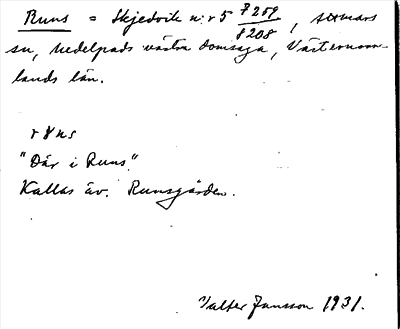 Runs = Skjedvik n:r 5 7259/8208, Stornars
sn, Medelpads västra domsaga, Västernorr-
lands län.
rʉns
"Där i Runs"
Kallas äv. Runsgården.
Valter Jansson 1931.